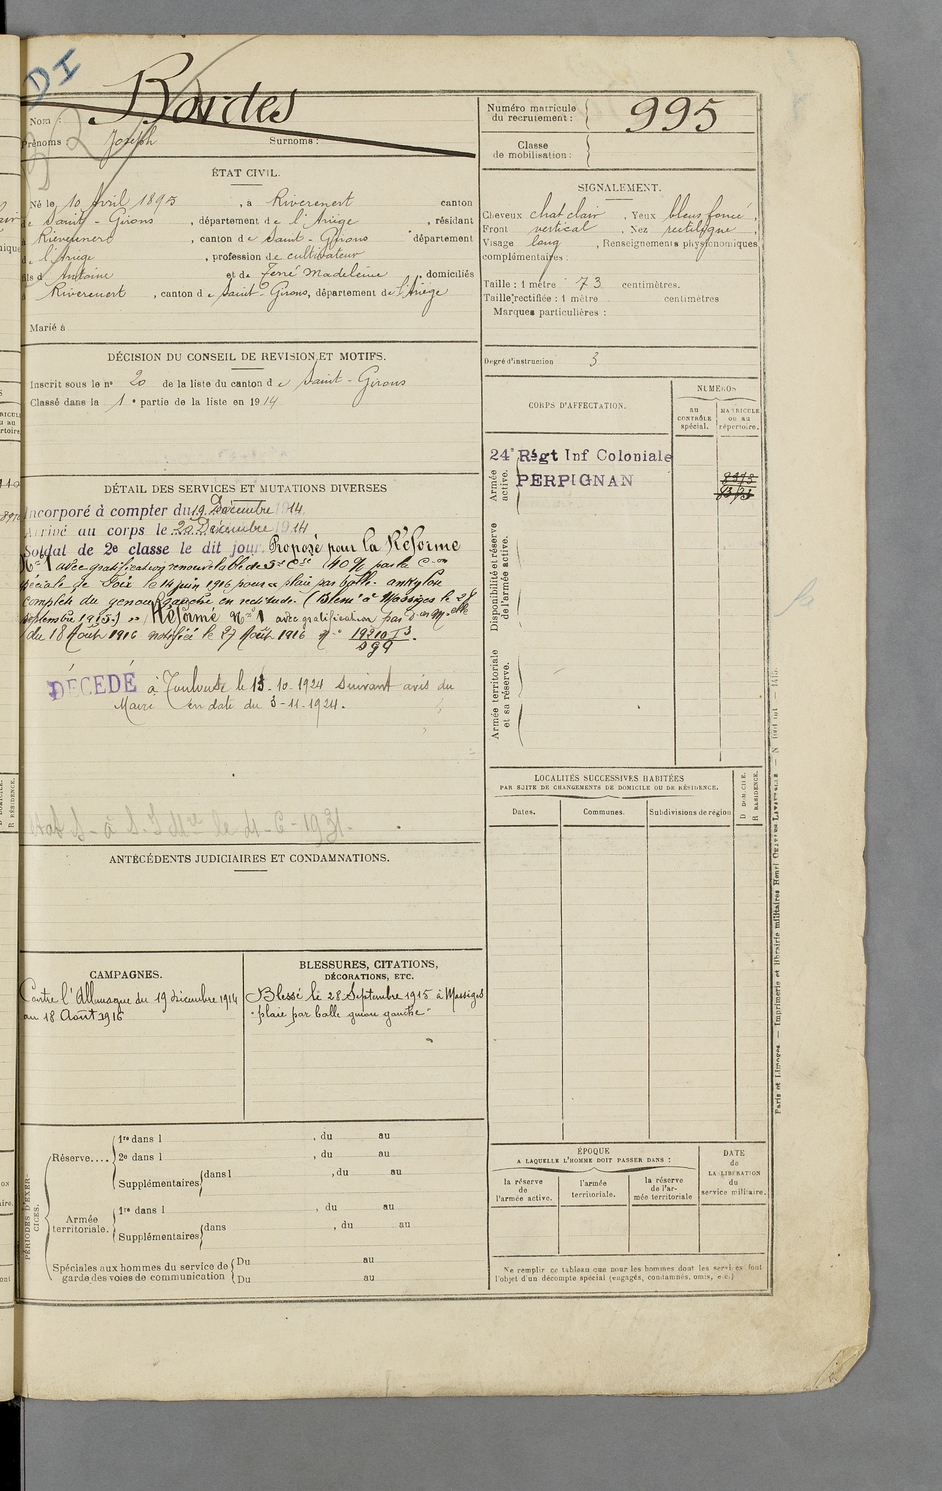 DI
Nom : Bordes
Prénoms : Joseph Surnoms :
Numéro matricule du recrutement : 995
Classe de mobilisation :
ÉTAT CIVIL.
Né le 10 Avril 1895, à Riverenert canton
de Saint-Girons, département de l'Ariège, résidant
à Riverenert, canton de Saint-Girons département
de l'Ariège, profession de cultivateur
fils d Antoine et de Ferré Madeleine, domiciliés
à Riverenert, canton de Saint-Girons, département de l'Ariège
Marié à
SIGNALEMENT.
Cheveux chat clair, Yeux bleus foncé,
Front vertical, Nez rectiligne,
Visage long, Renseignements physionomiques
complémentaires :
Taille : 1 mètre 73 centimètres.
Taille rectifiée : 1 mètre centimètres
Marques particulières :
Degré d'instruction 3
DÉCISION DU CONSEIL DE REVISION ET MOTIFS.
Inscrit sous le nº 20 de la liste du canton de Saint-Girons
Classé dans la 1e partie de la liste en 1914
CORPS D'AFFECTATION.
NUMÉROS
au CONTRÔLE spécial.
MATRICULE ou au répertoire.
Armée active.
24e Régt Inf Coloniale
PERPIGNAN
Disponibilité et réserve de l'armée active.
Armée territoriale et sa réserve.
DÉTAIL DES SERVICES ET MUTATIONS DIVERSES
Incorporé à compter du 19 Décembre 1914
Arrivé au corps le 20 Décembre 1914
Soldat de 2e classe le dit jour. Proposé pour la Réforme
Nº 1 avec gratification renouvelable de 5e Cse (40 % par la Con
spéciale de Foix le 14 juin 1916 pour plaie par balle ankylose
complète du genou gauche en rectitude. (Blessé à Massiges le 28
septembre 1915.) Réformé Nº 1 avec gratification par don Melle
du 18 Août 1916 notifiée le 27 Août 1916
DÉCÉDÉ à Toulouse le 15-10-1924 suivant avis du
Maire en date du 3-11-1924.
le 4-6-1931.
ANTÉCÉDENTS JUDICIAIRES ET CONDAMNATIONS.
LOCALITÉS SUCCESSIVES HABITÉES
PAR SUITE DE CHANGEMENTS DE DOMICILE OU DE RÉSIDENCE.
Dates. Communes. Subdivisions de région
D DOMICILE.
R RÉSIDENCE.
CAMPAGNES.
Contre l'Allemagne du 19 décembre 1914
au 18 Août 1916
BLESSURES, CITATIONS,
DÉCORATIONS, ETC.
Blessé le 28 Septembre 1915 à Massiges
"plaie par balle genou gauche"
PÉRIODES D'EXERCICES.
Réserve.... 1re dans l , du au
2e dans l , du au
Supplémentaires dans l , du au
Armée territoriale. 1re dans l , du au
Supplémentaires dans , du au
Spéciales aux hommes du service de garde des voies de communication
Du au
Du au
ÉPOQUE
A LAQUELLE L'HOMME DOIT PASSER DANS :
la réserve de l'armée active.
l'armée territoriale.
la réserve de l'armée territoriale
DATE de LA LIBÉRATION du service militaire.
Ne remplir ce tableau que pour les hommes dont les services font
l'objet d'un décompte spécial (engagés, condamnés, omis, etc.)
Paris et Limoges. — Imprimerie et librairie militaires Henri CHARLES-LAVAUZELLE